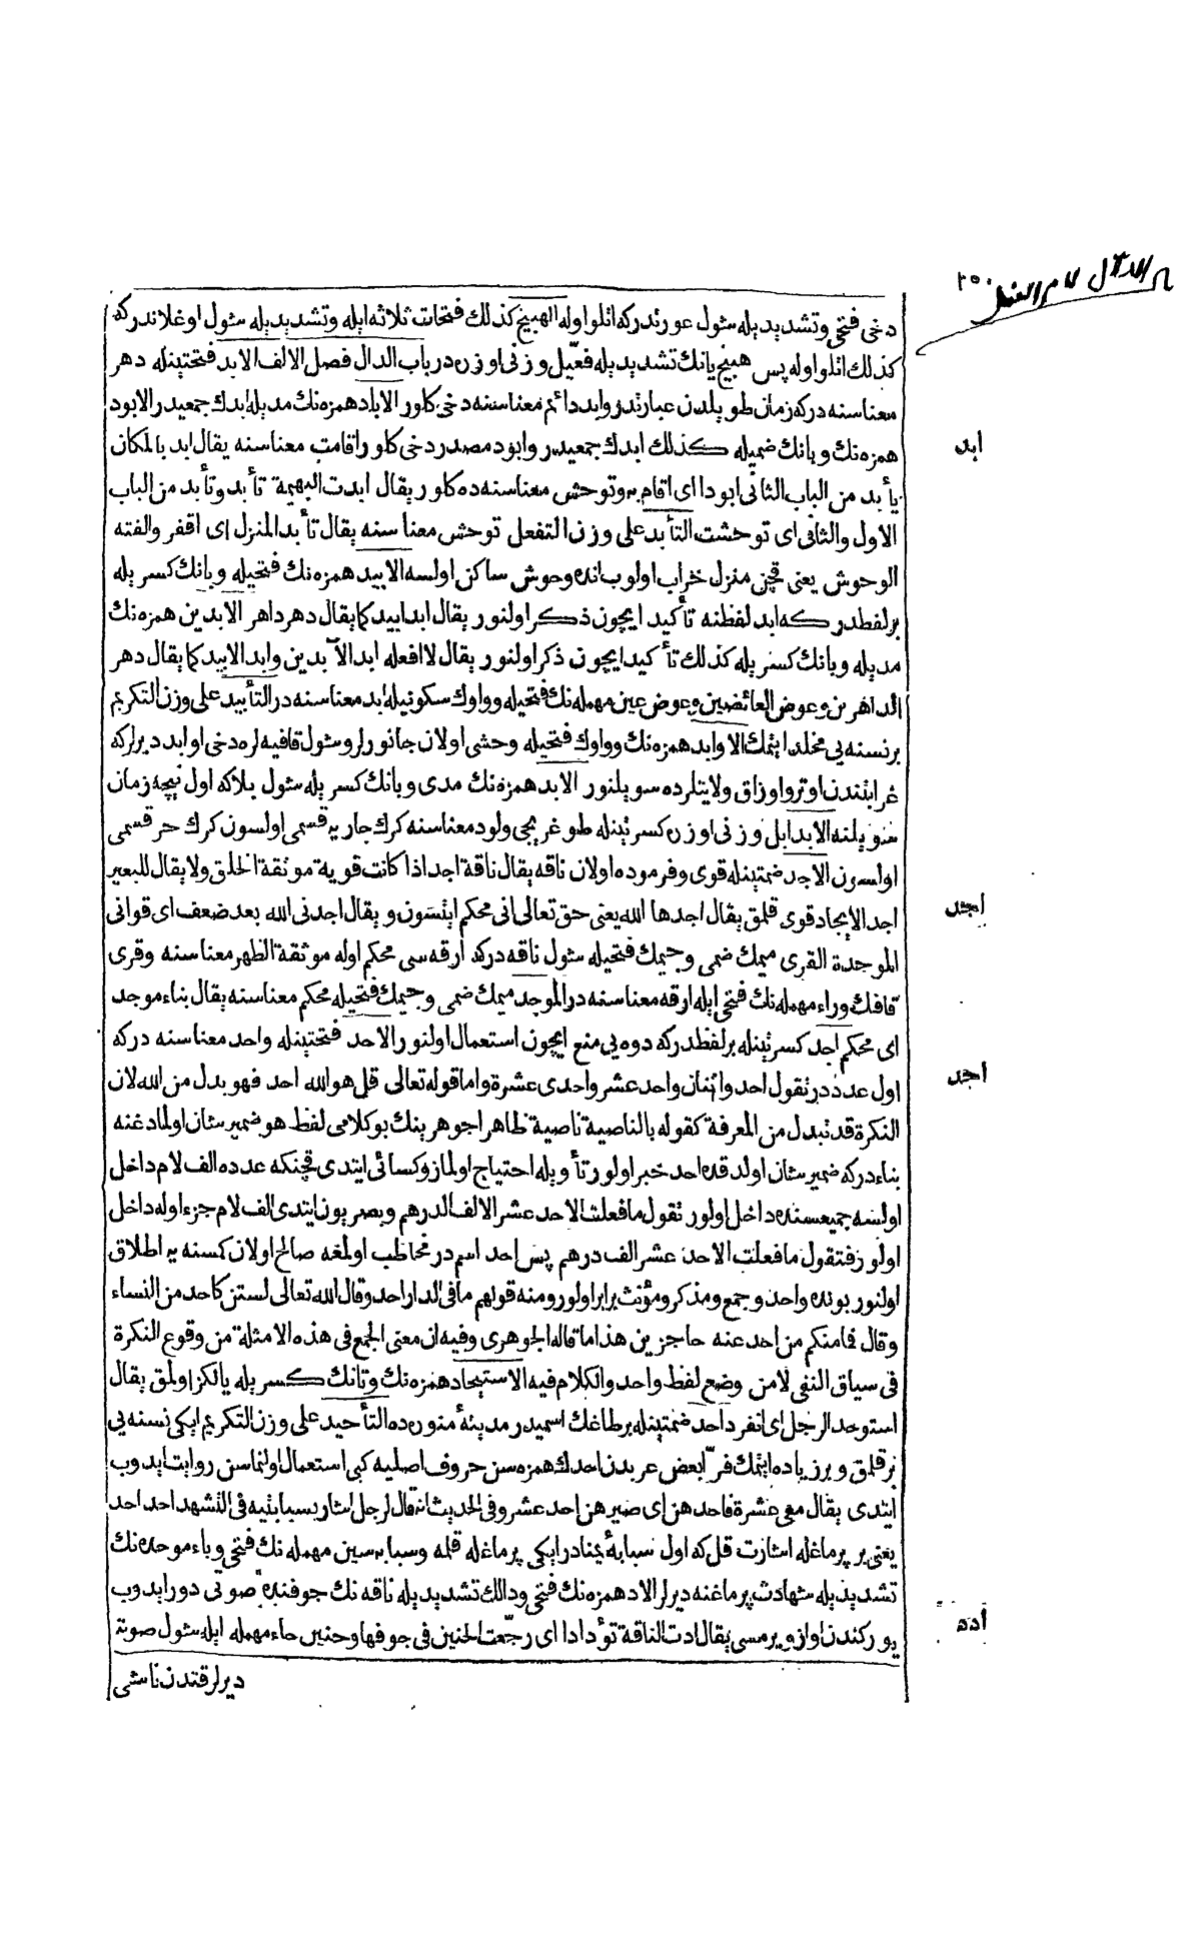 باب الدال لام الفعل
٢٥٠
دخى فتحى وتشديديله شول عورتدركه اتلو اوله الهبيخ كذلك فتحات ثلاثه ايله وتشديديله شول اوغلاندركه
كذلك اتلو اوله پس هبيخ يانك تشديديله فعّيل وزنى اوزره در باب الدال فصل الالف الابد فتحتينله دهر
معناسنه دركه زمان طويلدن عبارتدر وابد دائم معناسنه دخى كلور الاباد همزه نك مديله ابدك جمعيدر الابود
همزه نك وبانك ضميله كذلك ابدك جمعيدر وابود مصدر دخى كلور اقامت معناسنه يقال ابد بالمكان
يأبد من الباب الثانى ابودا اى اقام به وتوحش معناسنه ده كلور يقال ابدت البهيمة تأبد وتأبد من الباب
الاول والثانى اى توحشت التأبد على وزن التفعل توحش معناسنه يقال تأبد المنزل اى اقفر والفته
الوحوش يعنى قچن منزل خراب اولوب انده وحوش ساكن اولسه الابيد همزه نك فتحيله وبانك كسريله
برلفظدركه ابد لفظنه تأكيد ايچون ذكر اولنور يقال ابد ابيد كما يقال دهر داهر الابدين همزه نك
مديله وبانك كسريله كذلك تأكيد ايچون ذكر اولنور يقال لا افعله ابد الآبدين وابد الابيد كما يقال دهر
الداهرين وعوض العائضين وعوض عين مهمله نك فتحيله وواوك سكونيله ابد معناسنه در التأبيد على وزن التكريم
برنسنه يى مخلد ايتمك الاوابد همزه نك وواوك فتحيله وحشى اولان جانورلر وشول قافيه لره دخى اوابد ديرلركه
غرابتندن اوترو اوزاق ولايتلرده سويلنور الابد همزه نك مدى وبانك كسريله شول بلاكه اول نيچه زمان
سويلنه الابد ابل وزنى اوزره كسرتينله طوغريجى ولود معناسنه كرك جاريه قسمى اولسون كرك حر قسمى
اولسون الاجد ضمتينله قوى وفرموده اولان ناقه يقال ناقة اجد اذا كانت قوية موثقة الخلق ولا يقال للبعير
اجد الايجاد قوى قلمق يقال اجدها الله يعنى حق تعالى انى محكم ايتسون ويقال اجدنى الله بعد ضعف اى قوانى
الموجدة القرى ميمك ضمى وجيمك فتحيله شول ناقه دركه ارقه سى محكم اوله موثقة الظهر معناسنه وقرى
قافك وراء مهمله نك فتحى ايله ارقه معناسنه در الموجد ميمك ضمى وجيمك فتحيله محكم معناسنه يقال بناء موجد
اى محكم اجد كسرتينله برلفظدركه دوه يى منع ايچون استعمال اولنور الاحد فتحتينله واحد معناسنه دركه
اول عدددر تقول احد واثنان واحد عشر واحدى عشرة واما قوله تعالى قل هو الله احد فهو بدل من الله لان
النكرة قد تبدل من المعرفة كقوله بالناصية ناصية ظاهرا جوهرينك بوكلامى لفظ هو ضمير شان اولمادغنه
بناءدركه ضمير شان اولدقده احد خبر اولور تأويله احتياج اولماز وكسائى ايتدى قچنكه عدده الف لام داخل
اولسه جميعسنده داخل اولور تقول ما فعلت الاحد عشر الالف الدرهم وبصريون ايتدى الف لام جزء اوله داخل
اولور فتقول ما فعلت الاحد عشر الف درهم پس احد اسمدر مخاطب اولمغه صالح اولان كسنه يه اطلاق
اولنور بونده واحد وجمع ومذكر ومؤنث برابر اولور ومنه قولهم ما فى الدار احد وقال الله تعالى لستن كاحد من النساء
وقال فما منكم من احد عنه حاجزين هذا ما قاله الجوهرى وفيه ان معنى الجمع فى هذه الامثلة من وقوع النكرة
فى سياق النفى لا من وضع لفظ واحد والكلام فيه الاستيحاد همزه نك وتانك كسريله يالكز اولمق يقال
استوحد الرجل اى انفرد احد ضمتينله برطاغك اسميدر مدينۀ منوره ده التأحيد على وزن التكريم ايكى نسنه يى
برقلمق وبر زياده ايتمك فرّا بعض عربدن احدك همزه سن حروف اصليه كبى استعمال اولنماسن روايت ايدوب
ايتدى يقال معى عشرة فاحدهن اى صيرهن احد عشر وفى الحديث انه قال لرجل اشار بسبابتيه فى التشهد احد احد
يعنى بر پرماغله اشارت قل كه اول سبابۀ يمنادر ايكى پرماغله قلمه وسبابه سين مهمله نك فتحى وباء موحده نك
تشديديله شهادت پرماغنه ديرلر الاد همزه نك فتحى ودالك تشديديله ناقه نك جوفنده صوتى دور ايدوب
يوركندن اواز ويرمسى يقال ادت الناقة تؤد ادا اى رجّعت الحنين فى جوفها وحنين حاء مهمله ايله شول صوته
ديرلر قتدن ناشى
ابد
اجد
احد
ادد